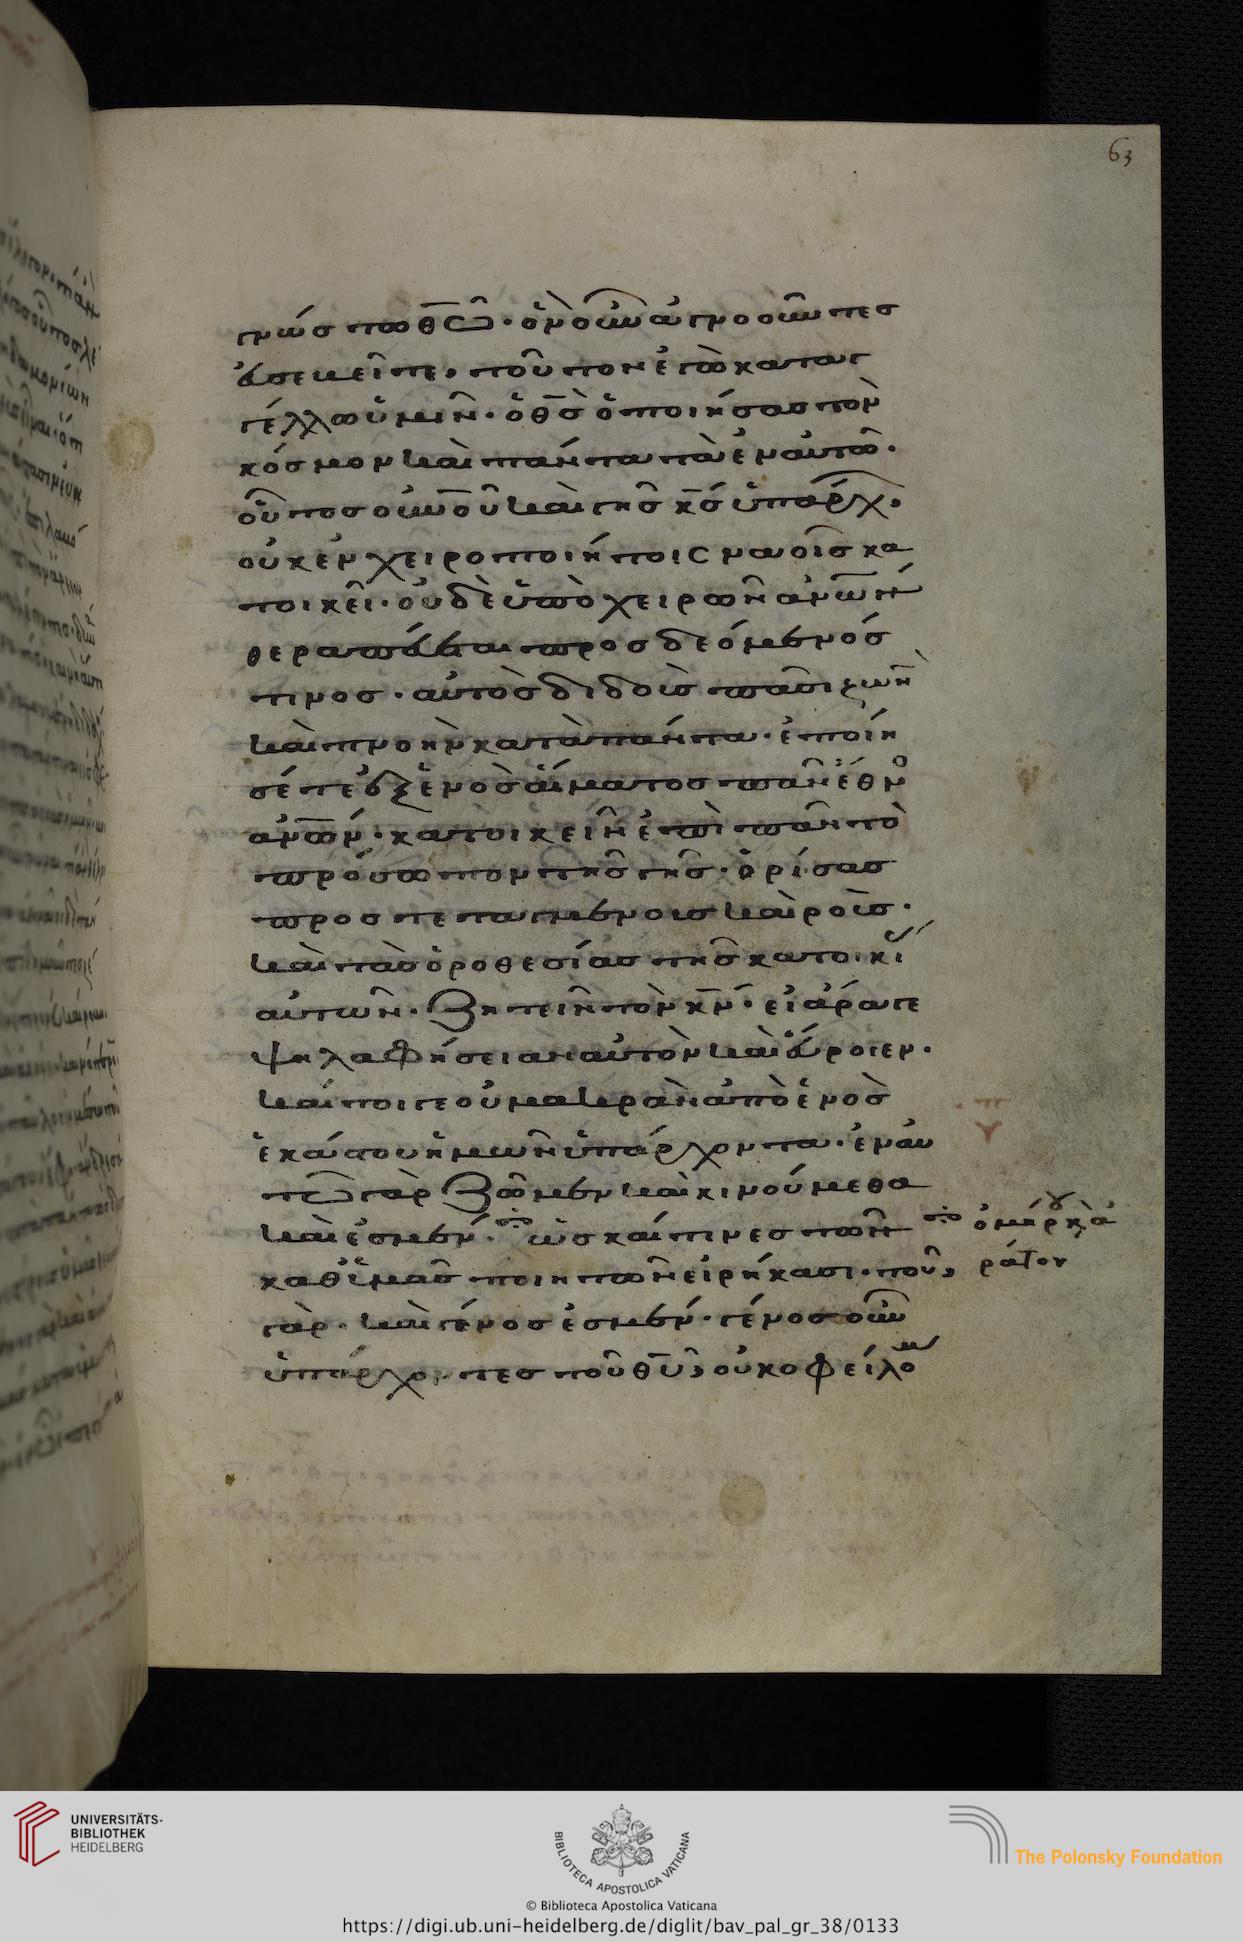 63
γνώστω θ̅ω̑· ὃν οὖν ἀγνοοῦντες
εὐσεβεῖτε, τοῦτον ἐγὼ καταγ
γέλλω ὑμῖν· ὁ θ̅ς̀ ὁ ποιήσας τὸν
κόσμον καὶ πάντα τὰ ἐν αὐτῶ·
οὗτος οὐ̅νο̅ῦ καὶ γῆς κ̅ς́ ὑπάρχ,
οὐκ ἐν χειροποιήτοις ναοῖς κα
τοικεῖ· οὐδὲ ὑπὸ χειρῶν ἀν̅ω̅ν
θεραπεύεται προσδεόμενός
τινος· αὐτὸς διδοὺς πᾶσι ζωὴν
καὶ πνοὴν κατὰ πάντα· ἐποίη
σέ τε ἐξ ἑνὸς αἵματος πᾶν ἔθνο
ἀν̅ω̅ν· κατοικεῖν ἐπὶ πᾶν τὸ
πρόσωπον τῆς γῆς· ὁρίσας
προστεταγμένοις καιροῖς·
καὶ τὰς ὁροθεσίας τῆς κατοικί
αὐτῶν· ζητεῖν τὸν κ̅ν́· εἰ ἄρα γε
ψηλαφήσειαν αὐτὸν καὶ εὕροιεν·
καί τοι γε οὐ μακρὰν ἀπὸ ἑνὸς
ἑκάστου ἡμῶν ὑπάρχοντα· ἐν αὐ
τῶ γὰρ ζῶμεν καὶ κινούμεθα
καὶ ἐσμέν· ὡς καί τινες τῶν
ὁμήρου κ̀ ἀ
καθ' ἡμᾶς ποιητῶν εἰρήκασι· τοῦ,
ράτου
γὰρ· καὶ γένος ἐσμέν· γένος οὖν
ὑπάρχοντες τοῦ θ̅υ̑, οὐκ οφείλομ
UNIVERSITÄTS-
BIBLIOTHEK
HEIDELBERG
BIBLIOTECA APOSTOLICA VATICANA
The Polonsky Foundation
© Biblioteca Apostolica Vaticana
https://digi.ub.uni-heidelberg.de/diglit/bav_pal_gr_38/0133